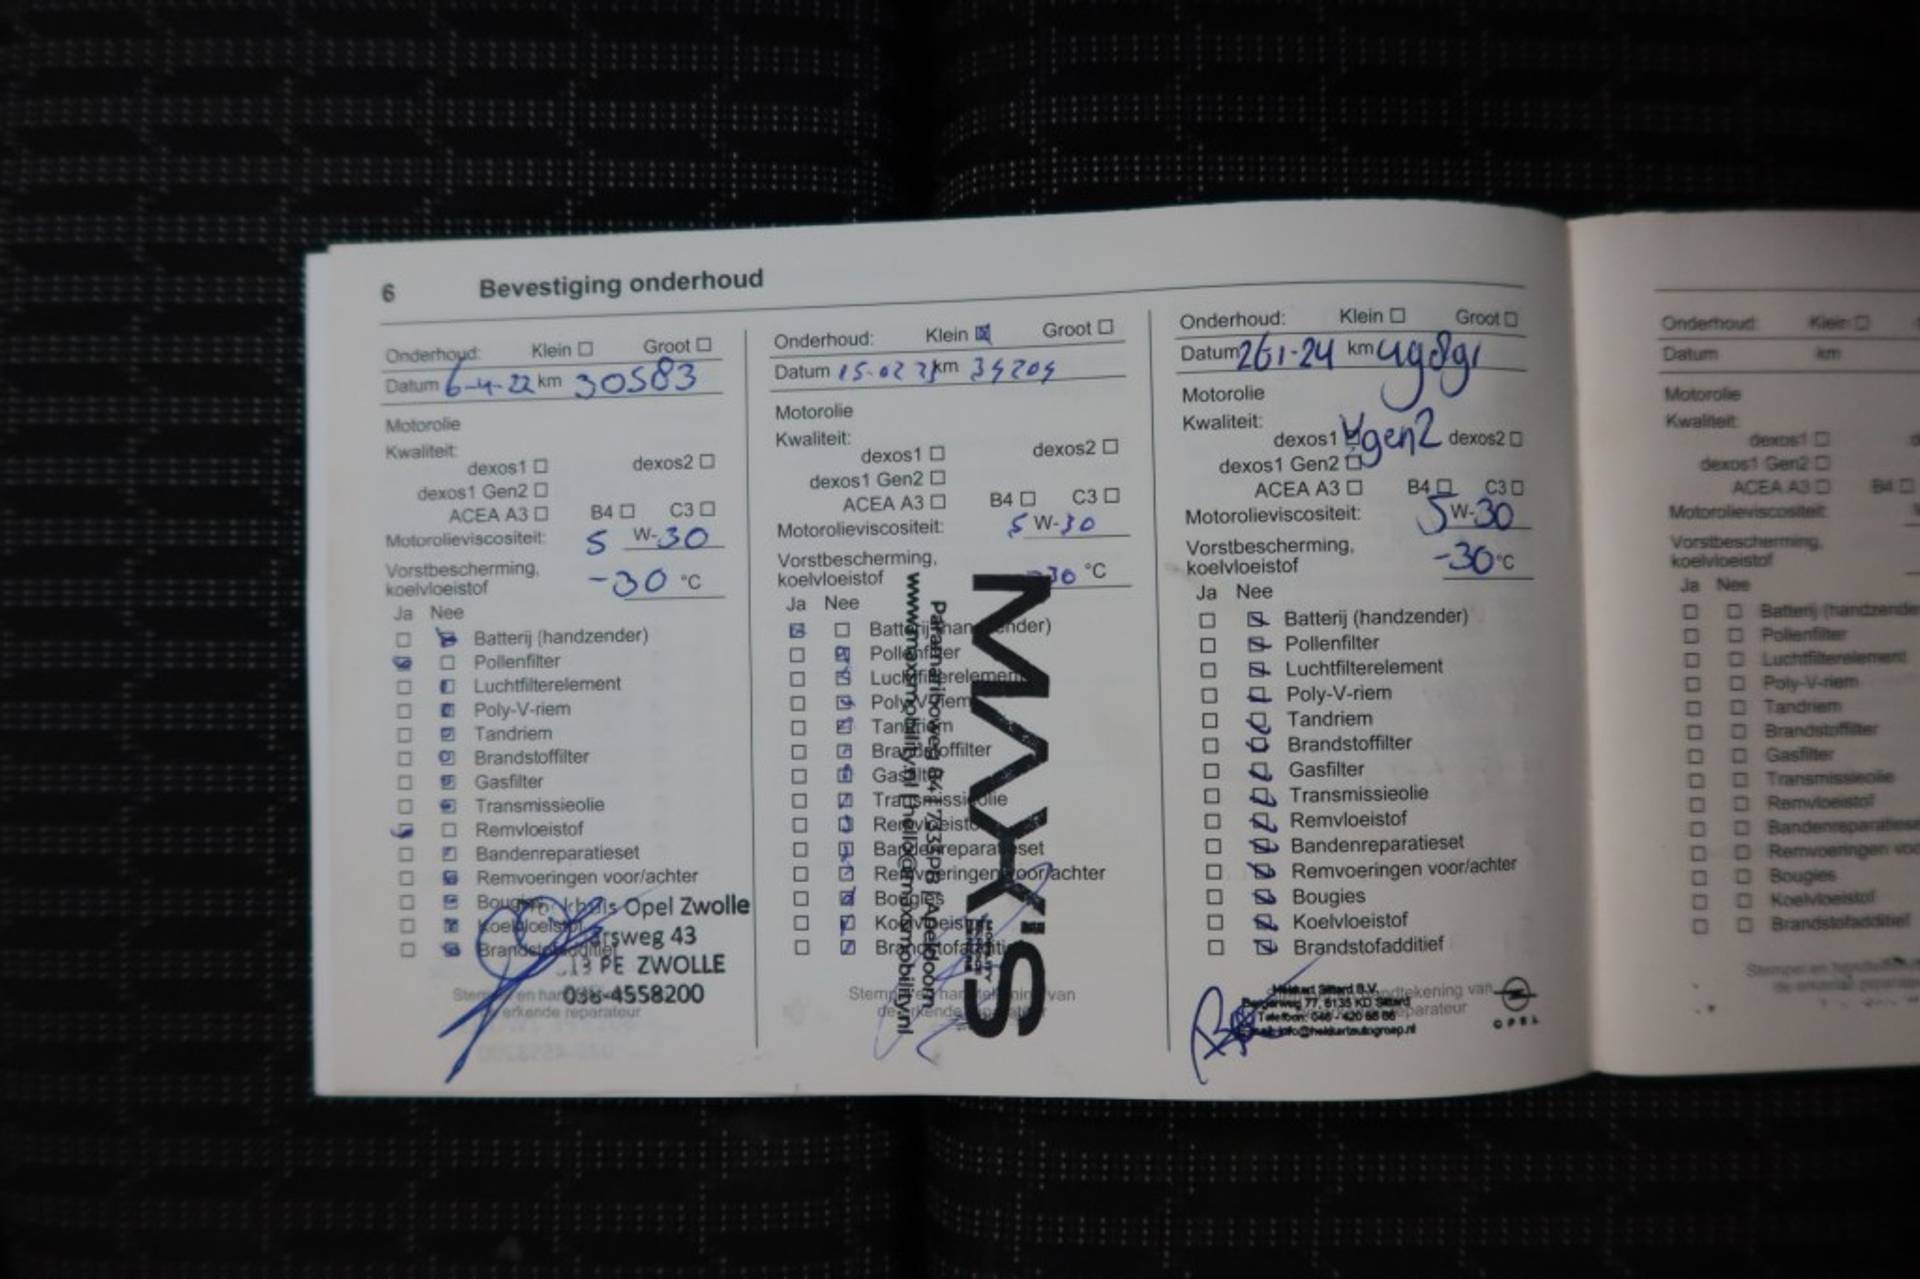 6 Bevestiging onderhoud
Onderhoud: Klein ☐ Groot ☐
Datum 6-4-22 km 30583
Motorolie
Kwaliteit:
dexos1 ☐ dexos2 ☐
dexos1 Gen2 ☐
ACEA A3 ☐ B4 ☐ C3 ☐
Motorolieviscositeit: 5 W-30
Vorstbescherming,
koelvloeistof -30 °C
Ja Nee
Batterij (handzender)
Pollenfilter
Luchtfilterelement
Poly-V-riem
Tandriem
Brandstoffilter
Gasfilter
Transmissieolie
Remvloeistof
Bandenreparatieset
Remvoeringen voor/achter
Bougies
Koelvloeistof
Brandstofadditief
Opel Zwolle
43
PE ZWOLLE
038-4558200
Stempel en
erkende reparateur
Onderhoud: Klein ☒ Groot ☐
Datum 15-02 km 34204
Motorolie
Kwaliteit:
dexos1 ☐ dexos2 ☐
dexos1 Gen2 ☐
ACEA A3 ☐ B4 ☐ C3 ☐
Motorolieviscositeit: 5 W-30
Vorstbescherming,
koelvloeistof -30 °C
Ja Nee
Batterij (handzender)
Pollenfilter
Luchtfilterelement
Poly-V-riem
Tandriem
Brandstoffilter
Gasfilter
Transmissieolie
Remvloeistof
Bandenreparatieset
Remvoeringen voor/achter
Bougies
Koelvloeistof
Brandstofadditief
Stempel en handtekening van
de erkende reparateur
MAX'S
MOBILITY
Paramariboweg 84 | 7333PB | Apeldoorn
www.maxsmobility.nl | hello@maxsmobility.nl
Onderhoud: Klein ☐ Groot ☐
Datum 26 1-24 km 49891
Motorolie
Kwaliteit:
dexos1 ☑ gen2 dexos2 ☐
dexos1 Gen2 ☐
ACEA A3 ☐ B4 ☐ C3 ☐
Motorolieviscositeit: 5 W-30
Vorstbescherming,
koelvloeistof -30 °C
Ja Nee
Batterij (handzender)
Pollenfilter
Luchtfilterelement
Poly-V-riem
Tandriem
Brandstoffilter
Gasfilter
Transmissieolie
Remvloeistof
Bandenreparatieset
Remvoeringen voor/achter
Bougies
Koelvloeistof
Brandstofadditief
handtekening van
reparateur
Sittard B.V.
77, 6135 KD Sittard
Telefoon: 046 - 420 66 66
OPEL
Onderhoud: Klein ☐
Datum km
Motorolie
Kwaliteit:
dexos1 ☐
dexos1 Gen2 ☐
ACEA A3 ☐ B4 ☐
Motorolieviscositeit:
Vorstbescherming,
koelvloeistof
Ja Nee
Batterij (handzender
Pollenfilter
Luchtfilterelement
Poly-V-riem
Tandriem
Brandstoffilter
Gasfilter
Transmissieolie
Remvloeistof
Bandenreparatieset
Remvoeringen
Bougies
Koelvloeistof
Brandstofadditief
Stempel en
de erkende